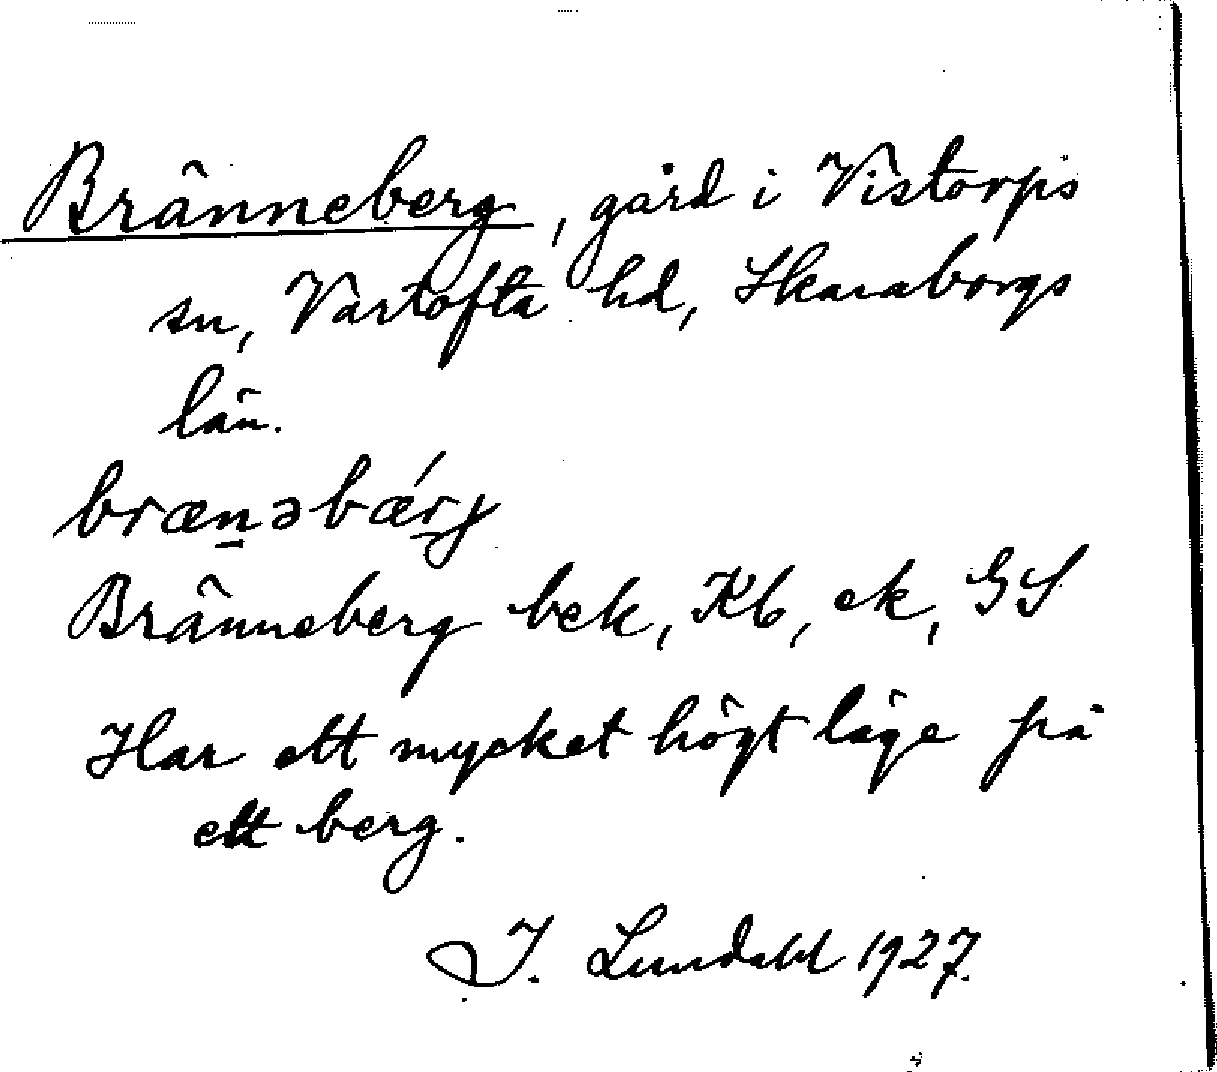 Bränneberg, gård i Vistorps
sn, Vartofta hd, Skaraborgs
län.
brænəbǽrj
Bränneberg bek, Kb, ek, GS
Har ett mycket högt läge på
ett berg.
I. Lundahl 1927.